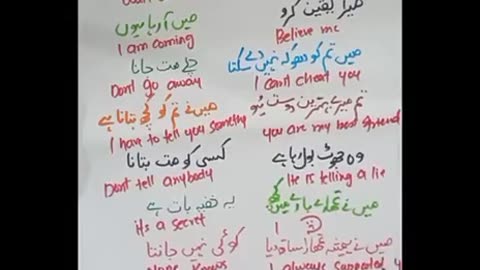 میں آرہا ہوں
I am coming
چلے مت جانا
Dont go away
میں نے تم کو کچھ بتانا ہے
I have to tell you
کسی کو مت بتانا
Dont tell anybody
یہ خفیہ بات ہے
its a secret
کوئی نہیں جانتا
میرا یقین کرو
Believe me
میں تم کو دھوکہ نہیں دے سکتا
I can't cheat you
تم میرے بہترین دوست ہو
you are my best friend
وہ جھوٹ بول رہا ہے
He is telling a lie
میں نے تمھارے بارے میں کچھ
I
میں نے ہمیشہ تمھارا ساتھ دیا
I always supported